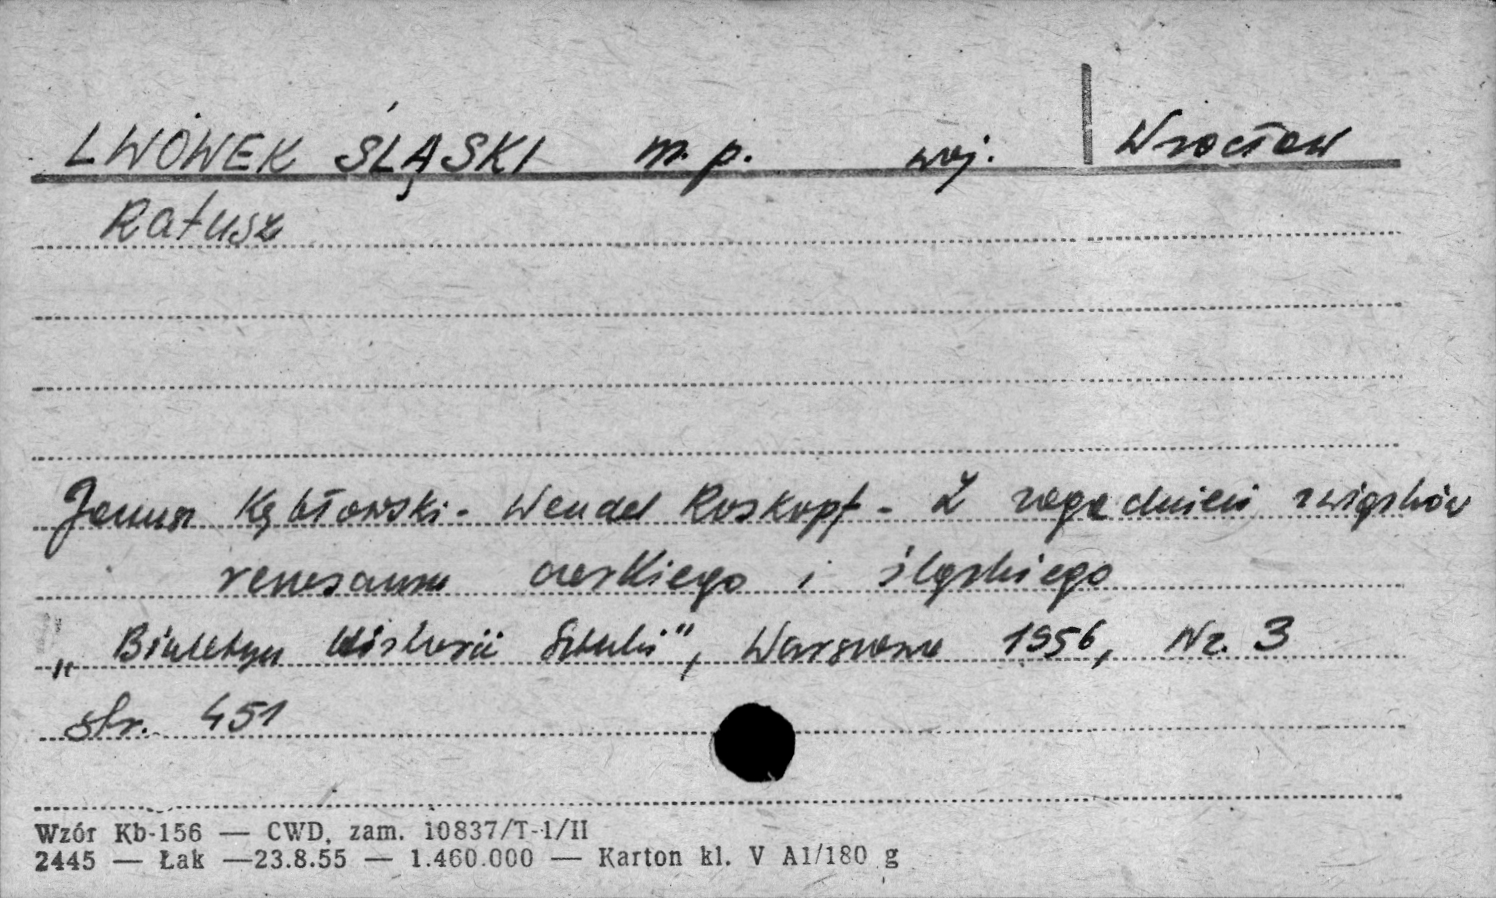 LWÓWEK ŚLĄSKI m. p. woj. Wrocław
Ratusz
Janusz Kębłowski - Wendel Roskopf - Z zagadnień związków
renesansu czeskiego i śląskiego
„Biuletyn Historii Sztuki", Warszawa 1956, Nr. 3
str. 451
Wzór Kb-156 — CWD, zam. 10837/T-1/II
2445 — Łak —23.8.55 — 1.460.000 — Karton kl. V A1/180 g